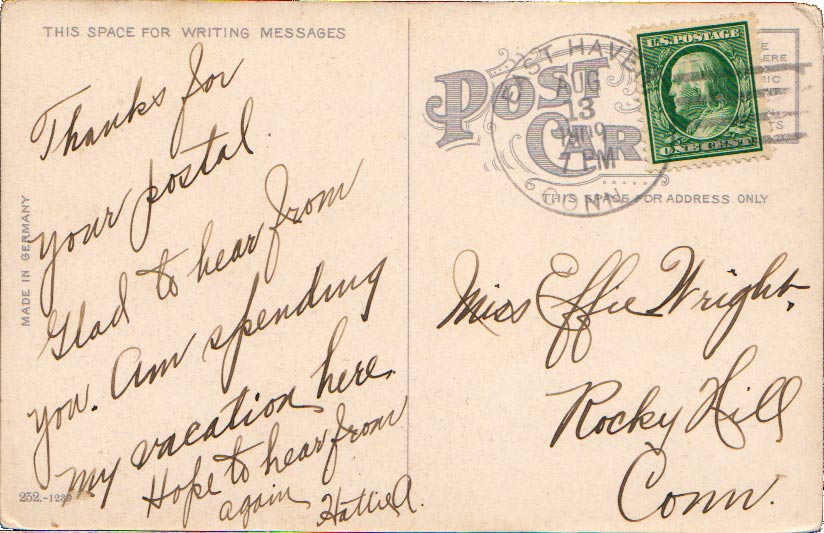 THIS SPACE FOR WRITING MESSAGES
Thanks for
your postal.
Glad to hear from
you. Am spending
my vacation here.
Hope to hear from
again Hattie A.
MADE IN GERMANY
252.-1239
POST
CAR
EAST HAVEN
AUG
13
1909
7 PM
CONN
U.S. POSTAGE
ONE CENT
THIS SPACE FOR ADDRESS ONLY
Miss Effie Wright,
Rocky Hill
Conn.